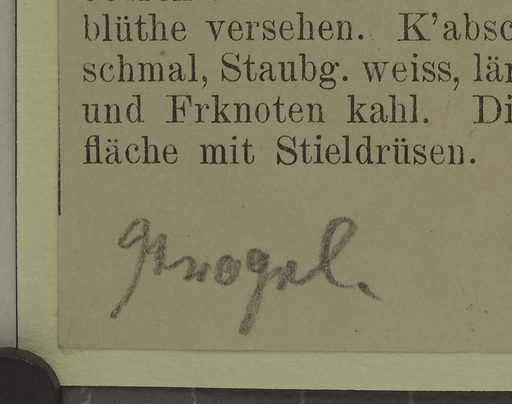 blüthe versehen. K'absc
schmal, Staubg. weiss, län
und Frknoten kahl. Di
fläche mit Stieldrüsen.